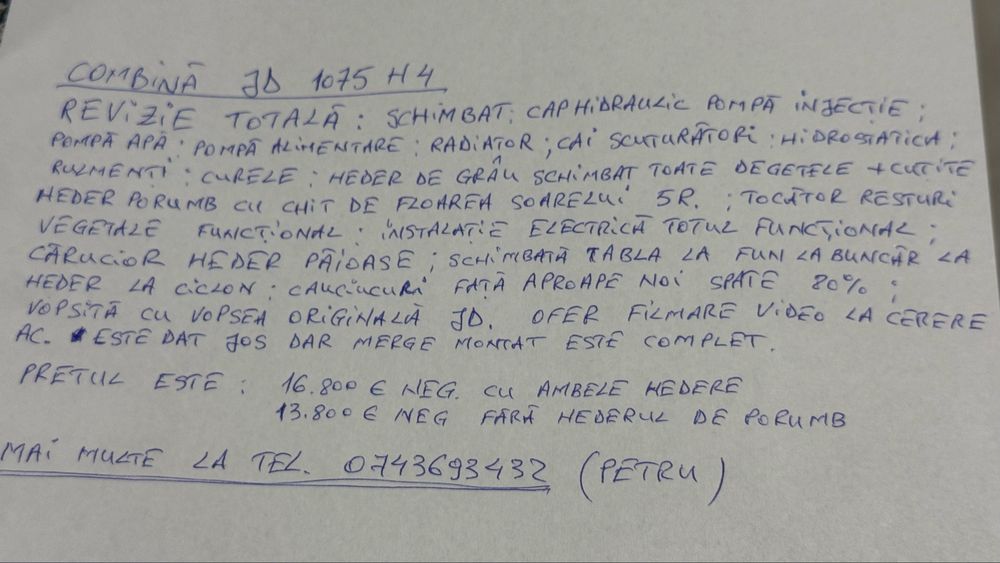 COMBINĂ JD 1075 H4
REVIZIE TOTALĂ : SCHIMBAT : CAP HIDRAULIC POMPĂ INJECȚIE ;
POMPĂ APĂ ; POMPĂ ALIMENTARE ; RADIATOR ; CAI SCUTURĂTORI ; HIDROSTATICA ;
RULMENȚI ; CURELE ; HEDER DE GRÂU SCHIMBAT TOATE DEGETELE + CUTITE
HEDER PORUMB CU CHIT DE FLOAREA SOARELUI 5R. ; TOCĂTOR RESTURI
VEGETALE FUNCȚIONAL ; INSTALAȚIE ELECTRICĂ TOTUL FUNCȚIONAL ;
CĂRUCIOR HEDER PĂIOASE ; SCHIMBATĂ TABLA LA FUN LA BUNCĂR LA
HEDER LA CICLON ; CAUCIUCURI FAȚĂ APROAPE NOI SPATE 80% ;
VOPSITĂ CU VOPSEA ORIGINALĂ JD. OFER FILMARE VIDEO LA CERERE
AC. ESTE DAT JOS DAR MERGE MONTAT ESTE COMPLET.
PRETUL ESTE : 16.800 € NEG. CU AMBELE HEDERE
13.800 € NEG FĂRĂ HEDERUL DE PORUMB
MAI MULTE LA TEL. 0743693432 (PETRU)